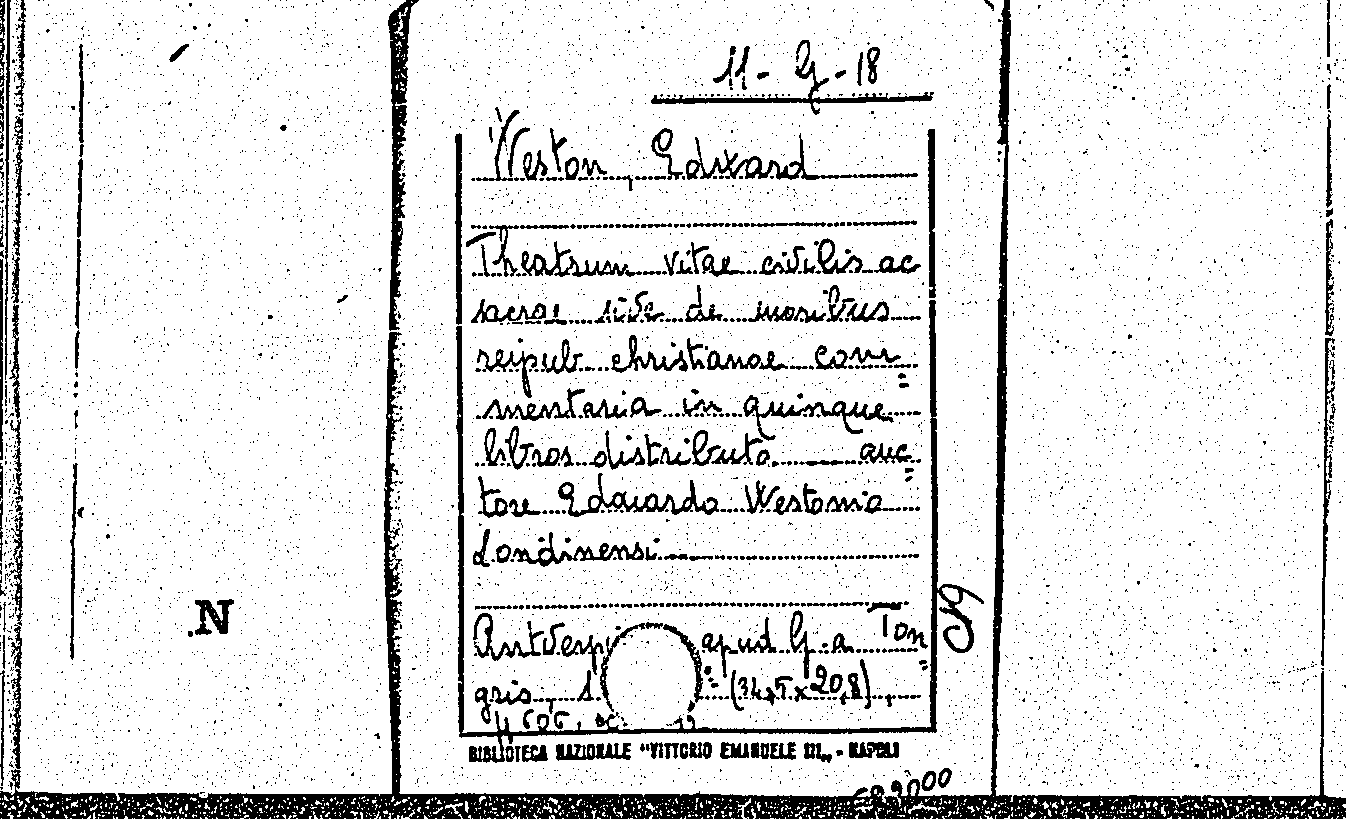 11 - G - 18
Weston, Edward
Theatrum vitae civilis ac
sacrae sive de moribus
reipub christianae com
=
mentaria in quinque
libros distributa auc
=
tore Eduardo Westonio
Londinensi
Antverpi apud G. a Ton
=
gris, 1 (34,5x20,8),
BIBLIOTECA NAZIONALE "VITTORIO EMANUELE III„ - NAPOLI
N